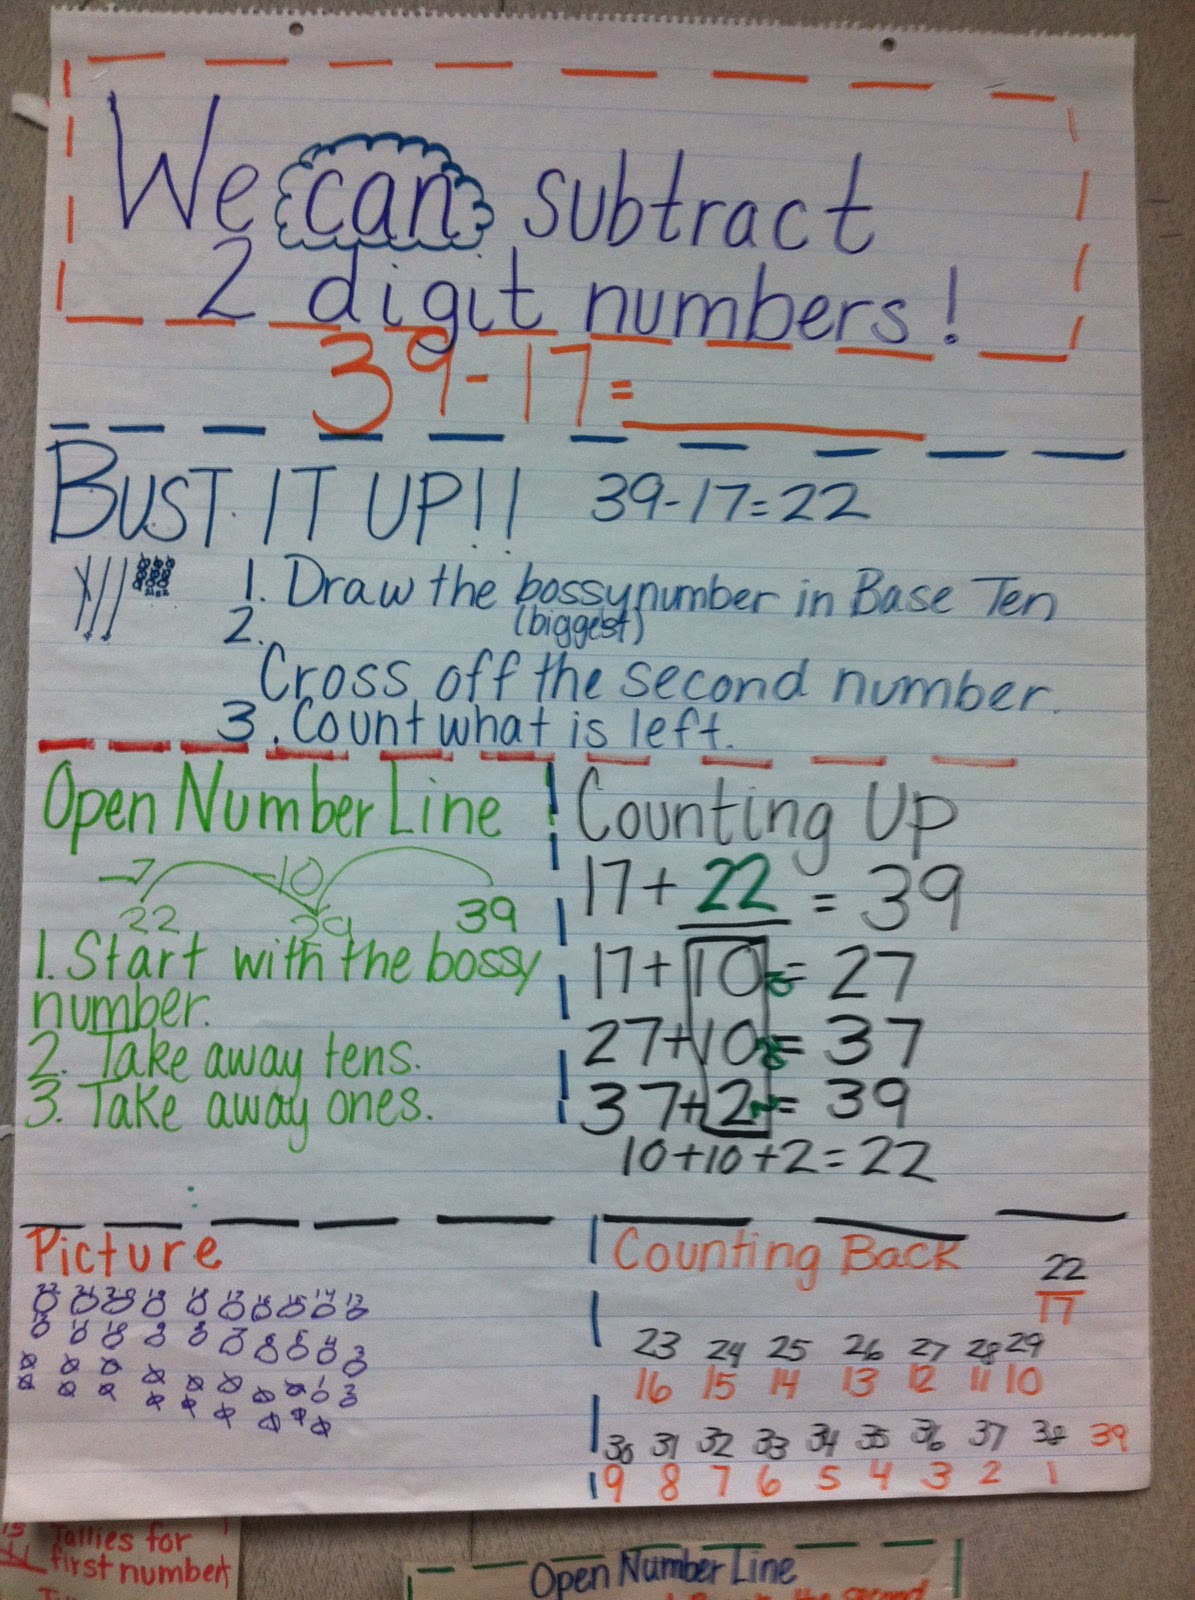 We can subtract
2 digit numbers!
39-17=
BUST IT UP!! 39-17=22
1. Draw the bossy number in Base Ten
(biggest)
2.
Cross off the second number.
3. Count what is left.
Open Number Line
-7 -10
22 29 39
1. Start with the bossy
number.
2. Take away tens.
3. Take away ones.
Counting Up
17+ 22 = 39
17+10=27
27+10=37
37+2=39
10+10+2=22
Picture
Counting Back
22
17
23 24 25 26 27 28 29
16 15 14 13 12 11 10
30 31 32 33 34 35 36 37 38 39
9 8 7 6 5 4 3 2 1
Tallies for
first number
Open Number Line